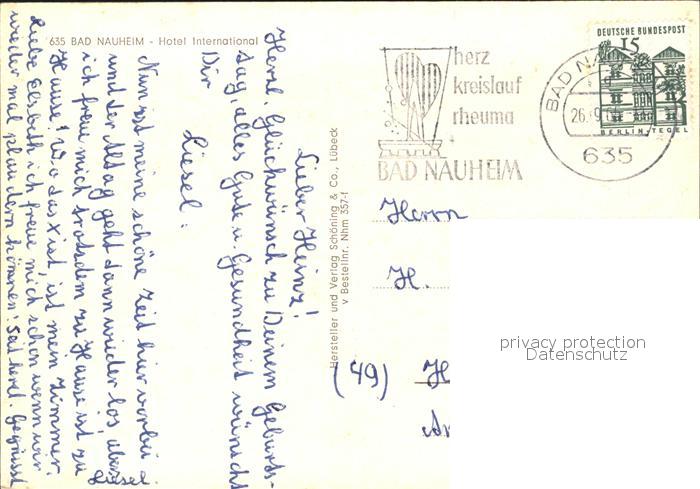 635 BAD NAUHEIM - Hotel International
Lieber Heinz!
Herzl. Glückwünsch zu Deinem Geburts-
tag, alles Gute u. Gesundheit wünscht
Dir
Liesel.
Nun ist meine schöne Zeit hier vorbei
und der Alltag geht dann wieder los, aber
ich freue mich trotzdem zu Hause ist zu
Hause! Wo das x ist, ist mein Zimmer.
Liebe Elsbeth ich freue mich schon wenn wir
wieder mal plaudern können! Sei herzl. Gegrüsst
Liesel
Hersteller und Verlag Schöning & Co., Lübeck
v Bestellnr. Nhm 357-f
herz
kreislauf
rheuma
BAD NAUHEIM
DEUTSCHE BUNDESPOST
15
BERLIN-TEGEL
BAD NA
26.-9.
635
Herrn
H.
(49) H
Ar
privacy protection
Datenschutz